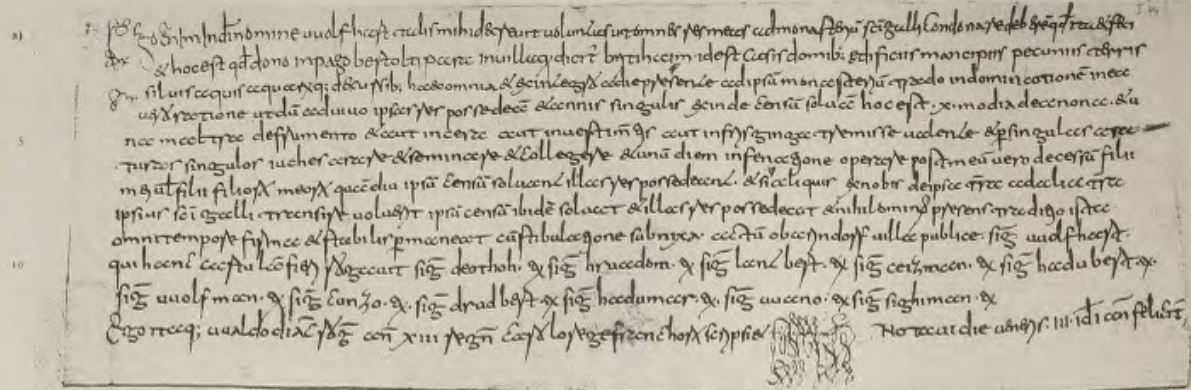 in dī nomine uuolfhart mihi decreuit uoluntas ut omnes res meas ad monasteriū sci galli condonare deberē qd ita & feci
& hoc est qd dono in pago in uilla q dicitr id est casis domib; edificiis mancipiis pecuniis terris
siluis aquis aquarūq; decursib; haec omnia & ex integro a die presente ad ipsū monasteriū trado in dominationē in ea
ratione ut dū aduiuo ipsas res possedeā & annis singulis exinde censū soluā hoc est .x. modia de annona. & u
na maltra de frumento & aut in cera aut in aut in tremisse ualente & p singulas ara
turas singulos iuches arare & seminare & collegere & unū diem in operare post meū uero decessū filii
mei ul filii filiorū meorū quādiu ipsū censū soluant illas res possedeant. & si aliquis ex nobis de ipsa trā ad alia trā
ipsius sci galli transire voluerit ipsū censū ibidē soluat & illas res possedeat & nihilomin presens traditio
omni tempore firma & stabilis pmaneat cū stibulatione subnixa. actū uilla publice. sig uuolfhart.
qui hanc cartulā fieri rogauit sig deothoh. & sig hruadom. & sig lantbert. & sig & sig hadubert. &
sig uuolfman. & sig cunzo. &. sig dradbert. & sig hadumar. &. sig uuano. & sig sighiman. &
Ego itaq; uualdo diac rog ann XIII regn carolo rege franchorū scripsi &
Notaui die ueneris. III. id iā feliciter